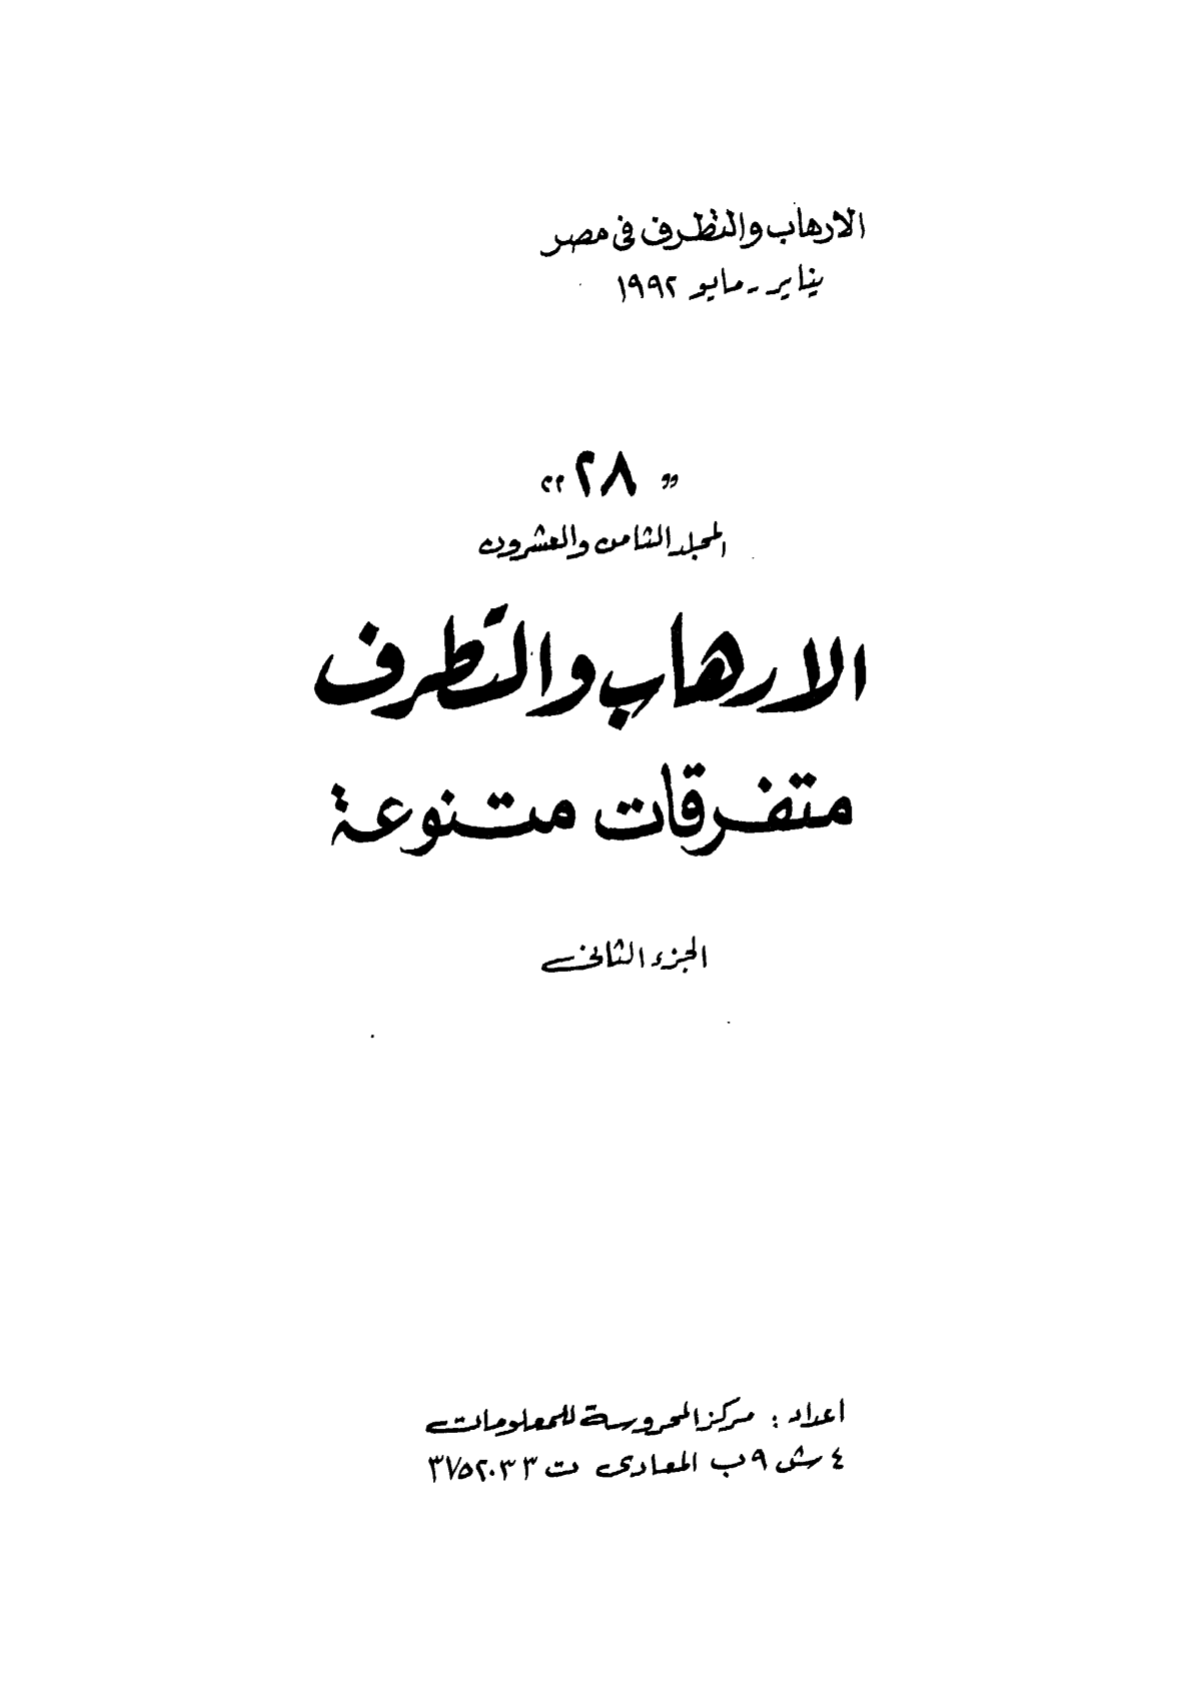 الارهاب والتطرف فى مصر
يناير - مايو ١٩٩٢
" ٢٨ "
المجلد الثامن والعشرون
الارهاب والتطرف
متفرقات متنوعة
الجزء الثانى
اعداد : مركز المحروسة للمعلومات
٤ ش ٩ ب المعادى ت ٣٧٥٢٠٣٣